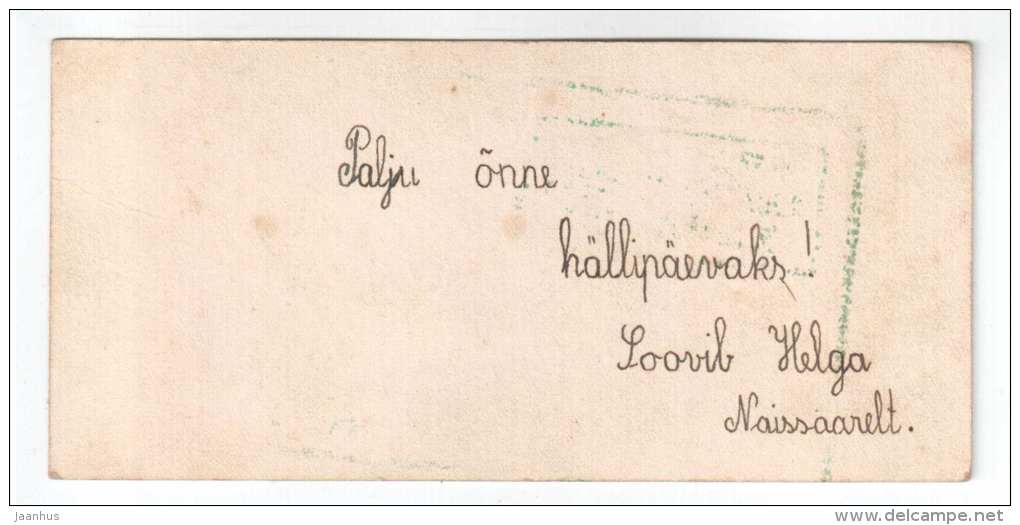 Palju õnne
hällipäevaks!
Soovib Helga
Naissaarelt.
jaanhus
www.delcampe.net